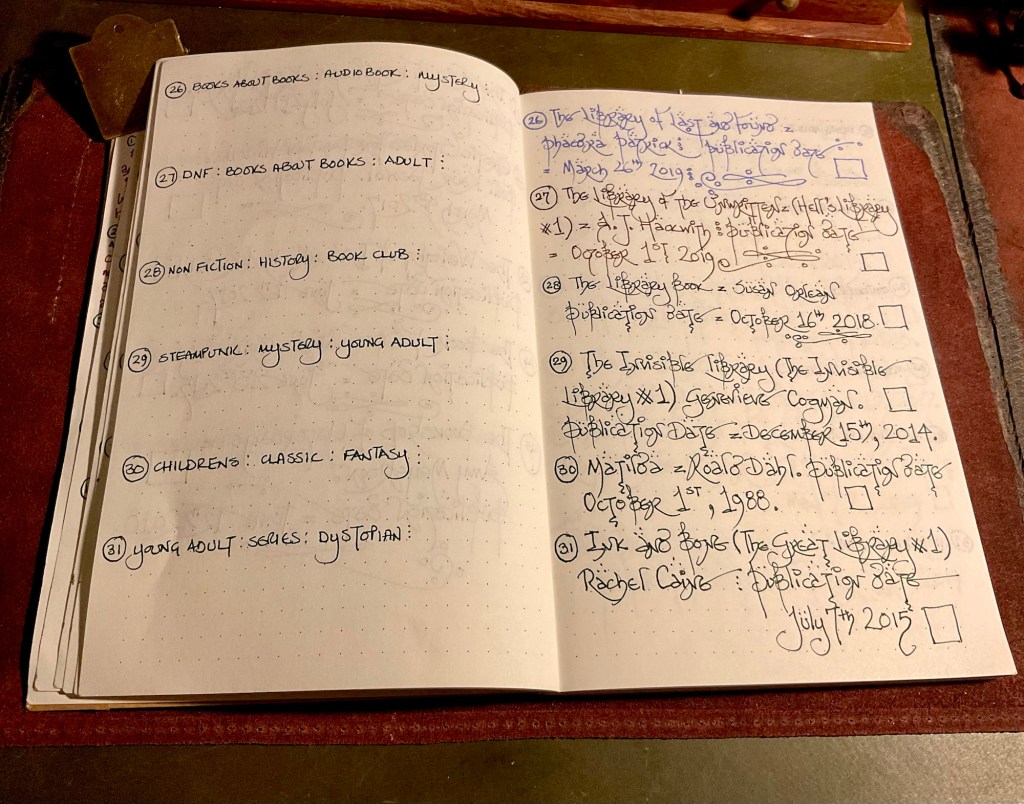 26 BOOKS ABOUT BOOKS : AUDIO BOOK : MYSTERY :
27 DNF : BOOKS ABOUT BOOKS : ADULT :
28 NON FICTION : HISTORY : BOOK CLUB :
29 STEAMPUNK : MYSTERY : YOUNG ADULT :
30 CHILDRENS : CLASSIC : FANTASY
31 YOUNG ADULT : SERIES : DYSTOPIAN :
26 The Library of Lost and Found =
Phaedra Patrick : Publication Date
= March 26th 2019 :
27 The Library of the Unwritten = (Hell's Library
#1) = A. J. Hackwith : Publication Date
= October 1st 2019
28 The Library Book = Susan Orlean
Publication Date = October 16th 2018.
29 The Invisible Library (The Invisible
Library #1) Genevieve Cogman.
Publication Date = December 15th, 2014.
30 Matilda = Roald Dahl. Publication Date
October 1st, 1988.
31 Ink and Bone (The Great Library #1)
Rachel Caine : Publication Date
July 7th 2015